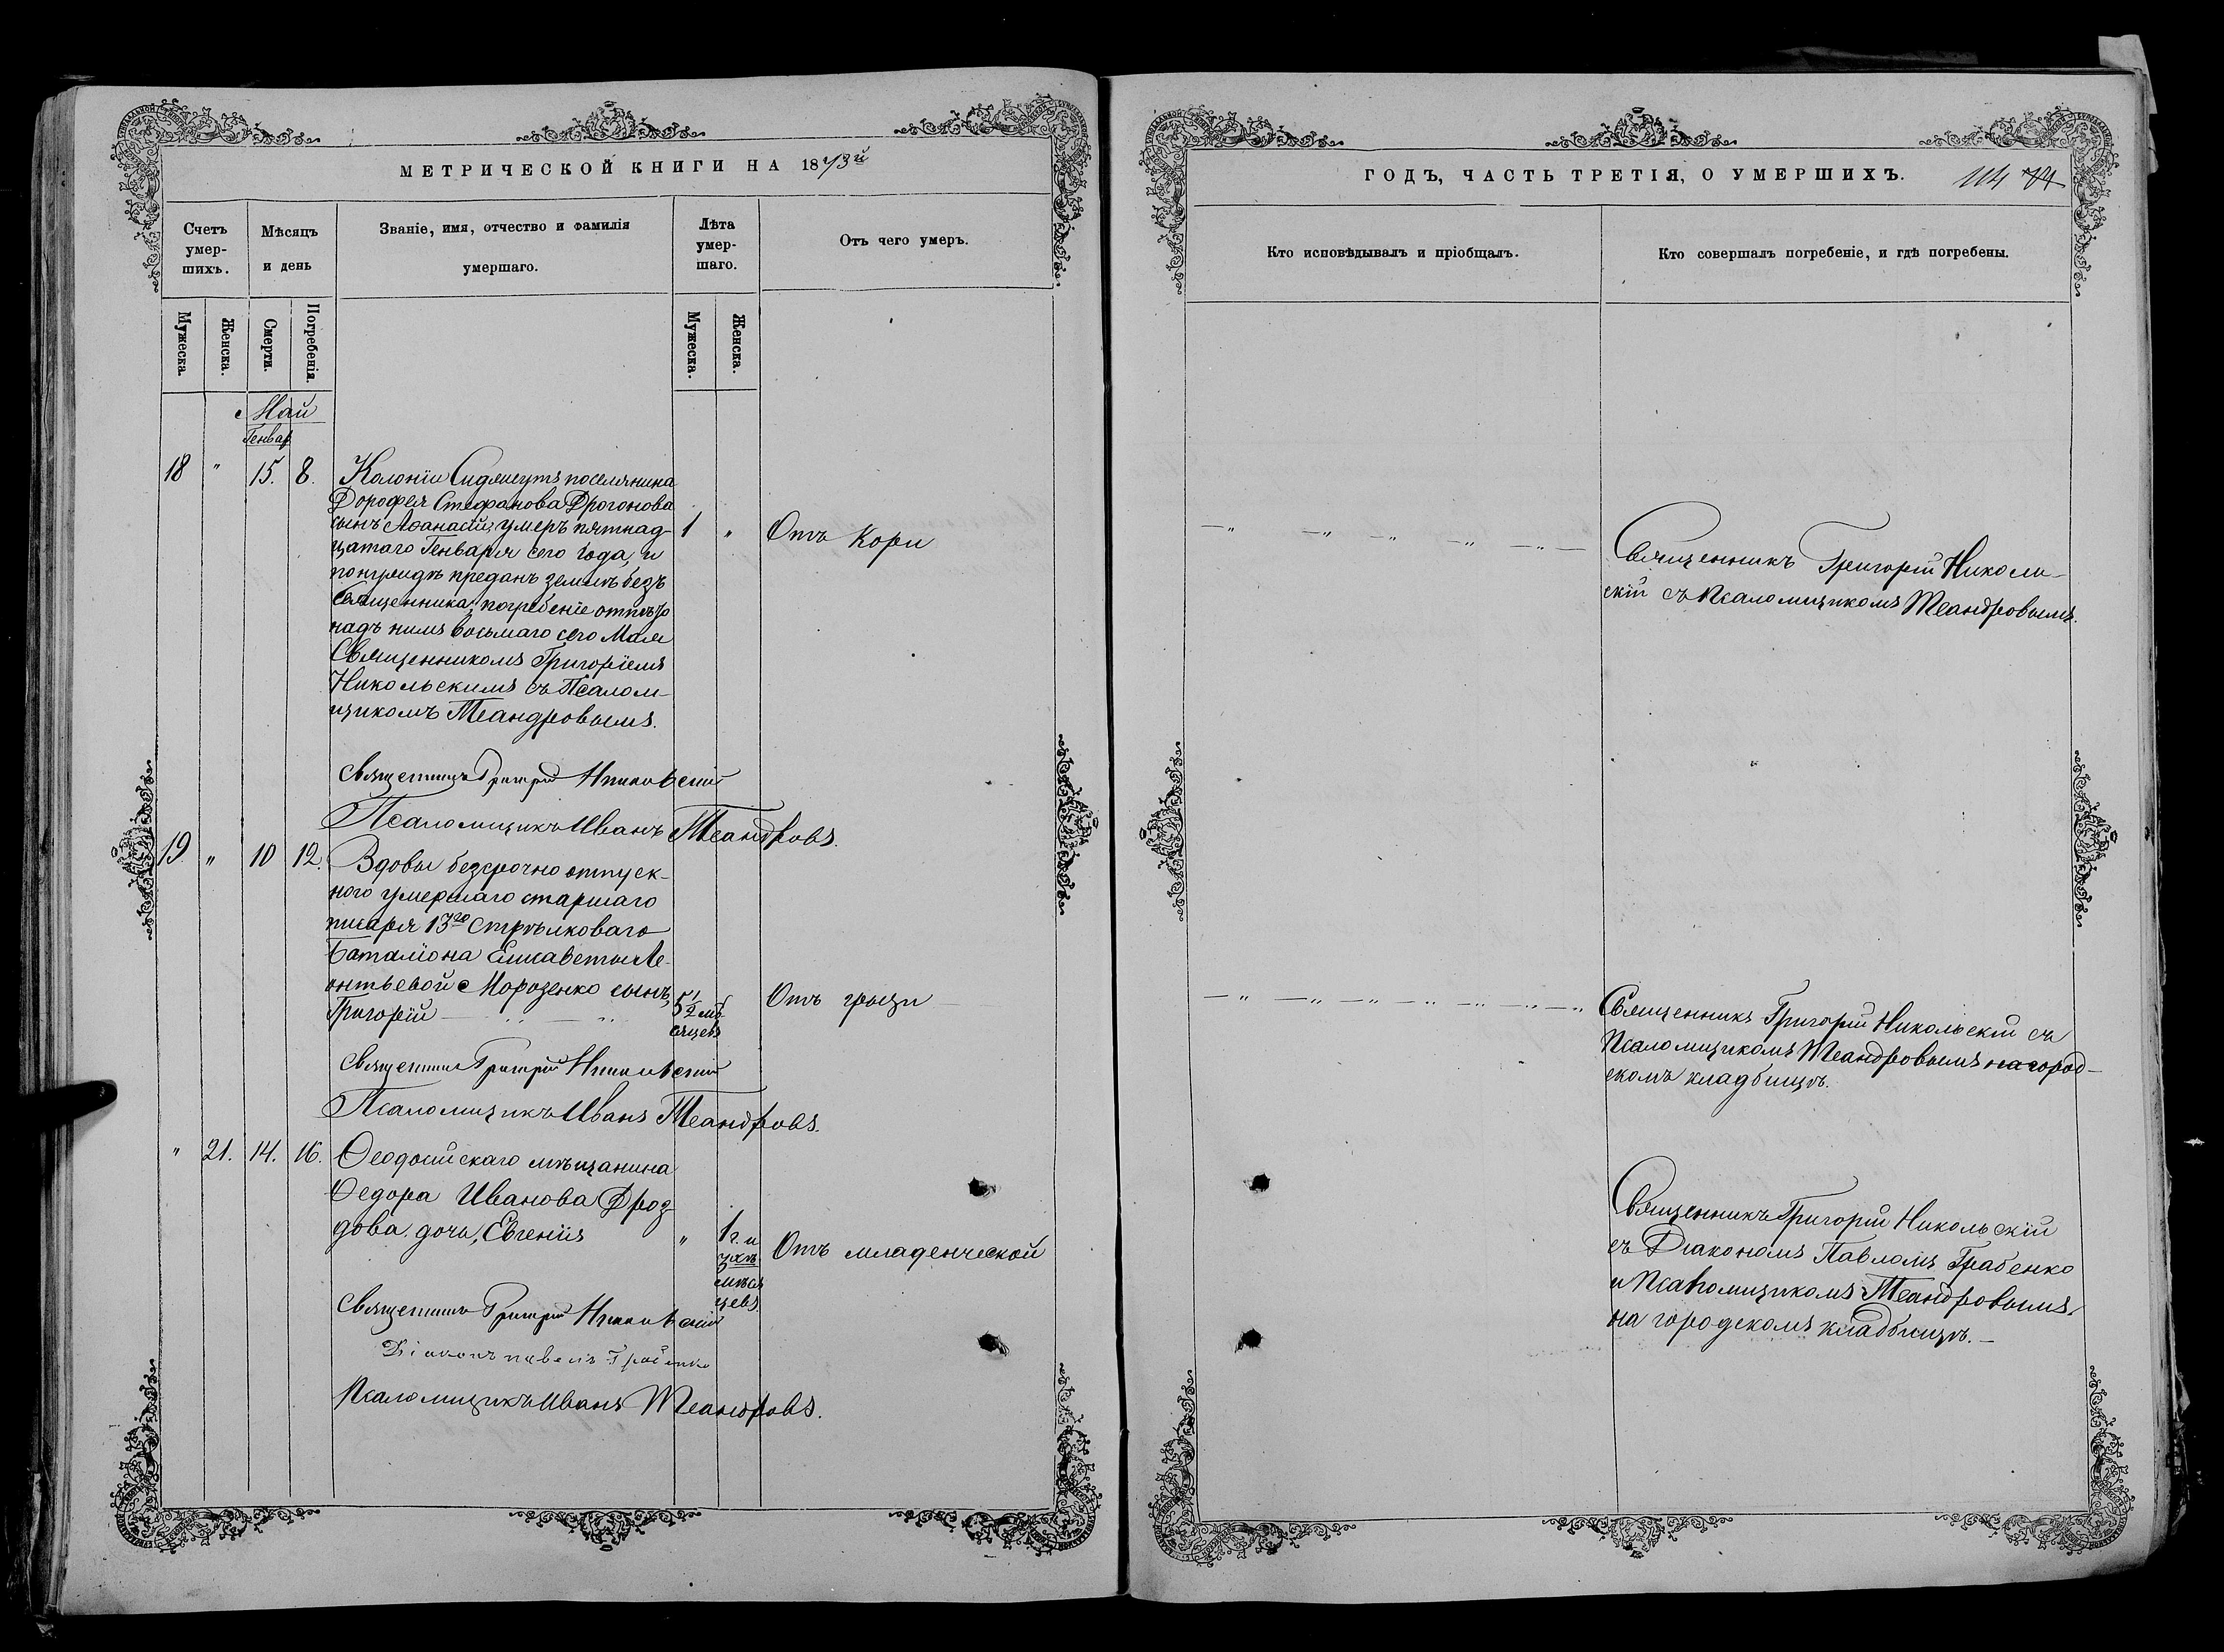 МЕТРИЧЕСКОЙ КНИГИ НА 1873й
Счетъ умер-шихъ.
Мѣсяцъ и день
Званіе, имя, отчество и фамилія умершаго.
Лѣта умер-шаго.
Отъ чего умеръ.
Мужеска.
Женска.
Смерти.
Погребенія.
Мужеска.
Женска.
Май
Генвар
18 " 15. 8.
Колоніи Сидлеутъ поселянина
Дорофея Стефанова Дрогонова
сынъ Аѳанасій, умеръ пятнад-
цатаго Генваря сего года, и
по нуждѣ преданъ землѣ безъ
Священника, погребеніе отпѣто
надъ нимъ восьмаго сего Мая
Священникомъ Григоріемъ
Никольскимъ съ Псалом-
щикомъ Теандровымъ.
1 "
Отъ Кори
Священникъ Григорій Никольскій
Псаломщикъ Иванъ Теандровъ.
19. " 10 12.
Вдовы безсрочно отпуск-
ного умершаго старшаго
писаря 13го Стрѣлковаго
Баталіона Елисаветы Ле-
онтьевой Морозенко сынъ,
Григорій
5½ мѣ-
сяцевъ
Отъ грыжи
Священникъ Григорій Никольскій
Псаломщикъ Иванъ Теандровъ.
" 21. 14. 16.
Ѳеодосійскаго мѣщанина
Ѳедора Иванова Дроз-
дова дочь, Евгенія
"
1 г. и
3хъ
мѣся
цевъ
Отъ младенческой
Священникъ Григорій Никольскій
Діаконъ Павелъ Грабенко
Псаломщикъ Иванъ Теандровъ.
ГОДЪ, ЧАСТЬ ТРЕТІЯ, О УМЕРШИХЪ.
114 74
Кто исповѣдывалъ и пріобщалъ.
Кто совершалъ погребеніе, и гдѣ погребены.
Священникъ Григорій Николь-
скій съ Псаломщикомъ Теандровымъ.
Священникъ Григорій Никольскій съ
Псаломщикомъ Теандровымъ на город-
скомъ кладбищѣ.
Священникъ Григорій Никольскій
съ Діакономъ Павломъ Грабенко
и Псаломщикомъ Теандровымъ,
на городскомъ кладбищѣ.